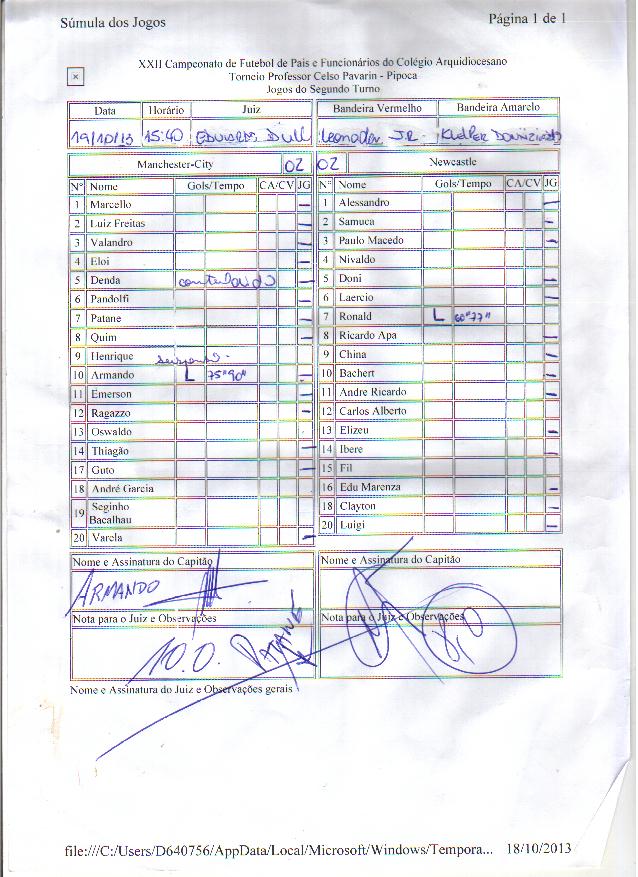 Súmula dos Jogos Página 1 de 1
XXII Campeonato de Futebol de Pais e Funcionários do Colégio Arquidiocesano
Torneio Professor Celso Pavarin - Pipoca
Jogos do Segundo Turno
Data Horário Juiz Bandeira Vermelho Bandeira Amarelo
19/10/13 15:40 EDUARDO Leonardo JR.
Manchester-City 02 02 Newcastle
Nº Nome Gols/Tempo CA/CV JG Nº Nome Gols/Tempo CA/CV JG
1 Marcello 1 Alessandro
2 Luiz Freitas 2 Samuca
3 Valandro 3 Paulo Macedo
4 Eloi 4 Nivaldo
5 Denda 5 Doni
6 Pandolfi 6 Laercio
7 Patane 7 Ronald L 60"77"
8 Quim 8 Ricardo Apa
9 Henrique suspenso 9 China
10 Armando L 75"90" 10 Bachert
11 Emerson 11 Andre Ricardo
12 Ragazzo 12 Carlos Alberto
13 Oswaldo 13 Elizeu
14 Thiagão 14 Ibere
17 Guto 15 Fil
18 André Garcia 16 Edu Marenza
19 Seginho Bacalhau 18 Clayton
20 Varela 20 Luigi
Nome e Assinatura do Capitão Nome e Assinatura do Capitão
ARMANDO
Nota para o Juiz e Observações Nota para o Juiz e Observações
10.0 PATANE
Nome e Assinatura do Juiz e Observações gerais
file:///C:/Users/D640756/AppData/Local/Microsoft/Windows/Tempora... 18/10/2013